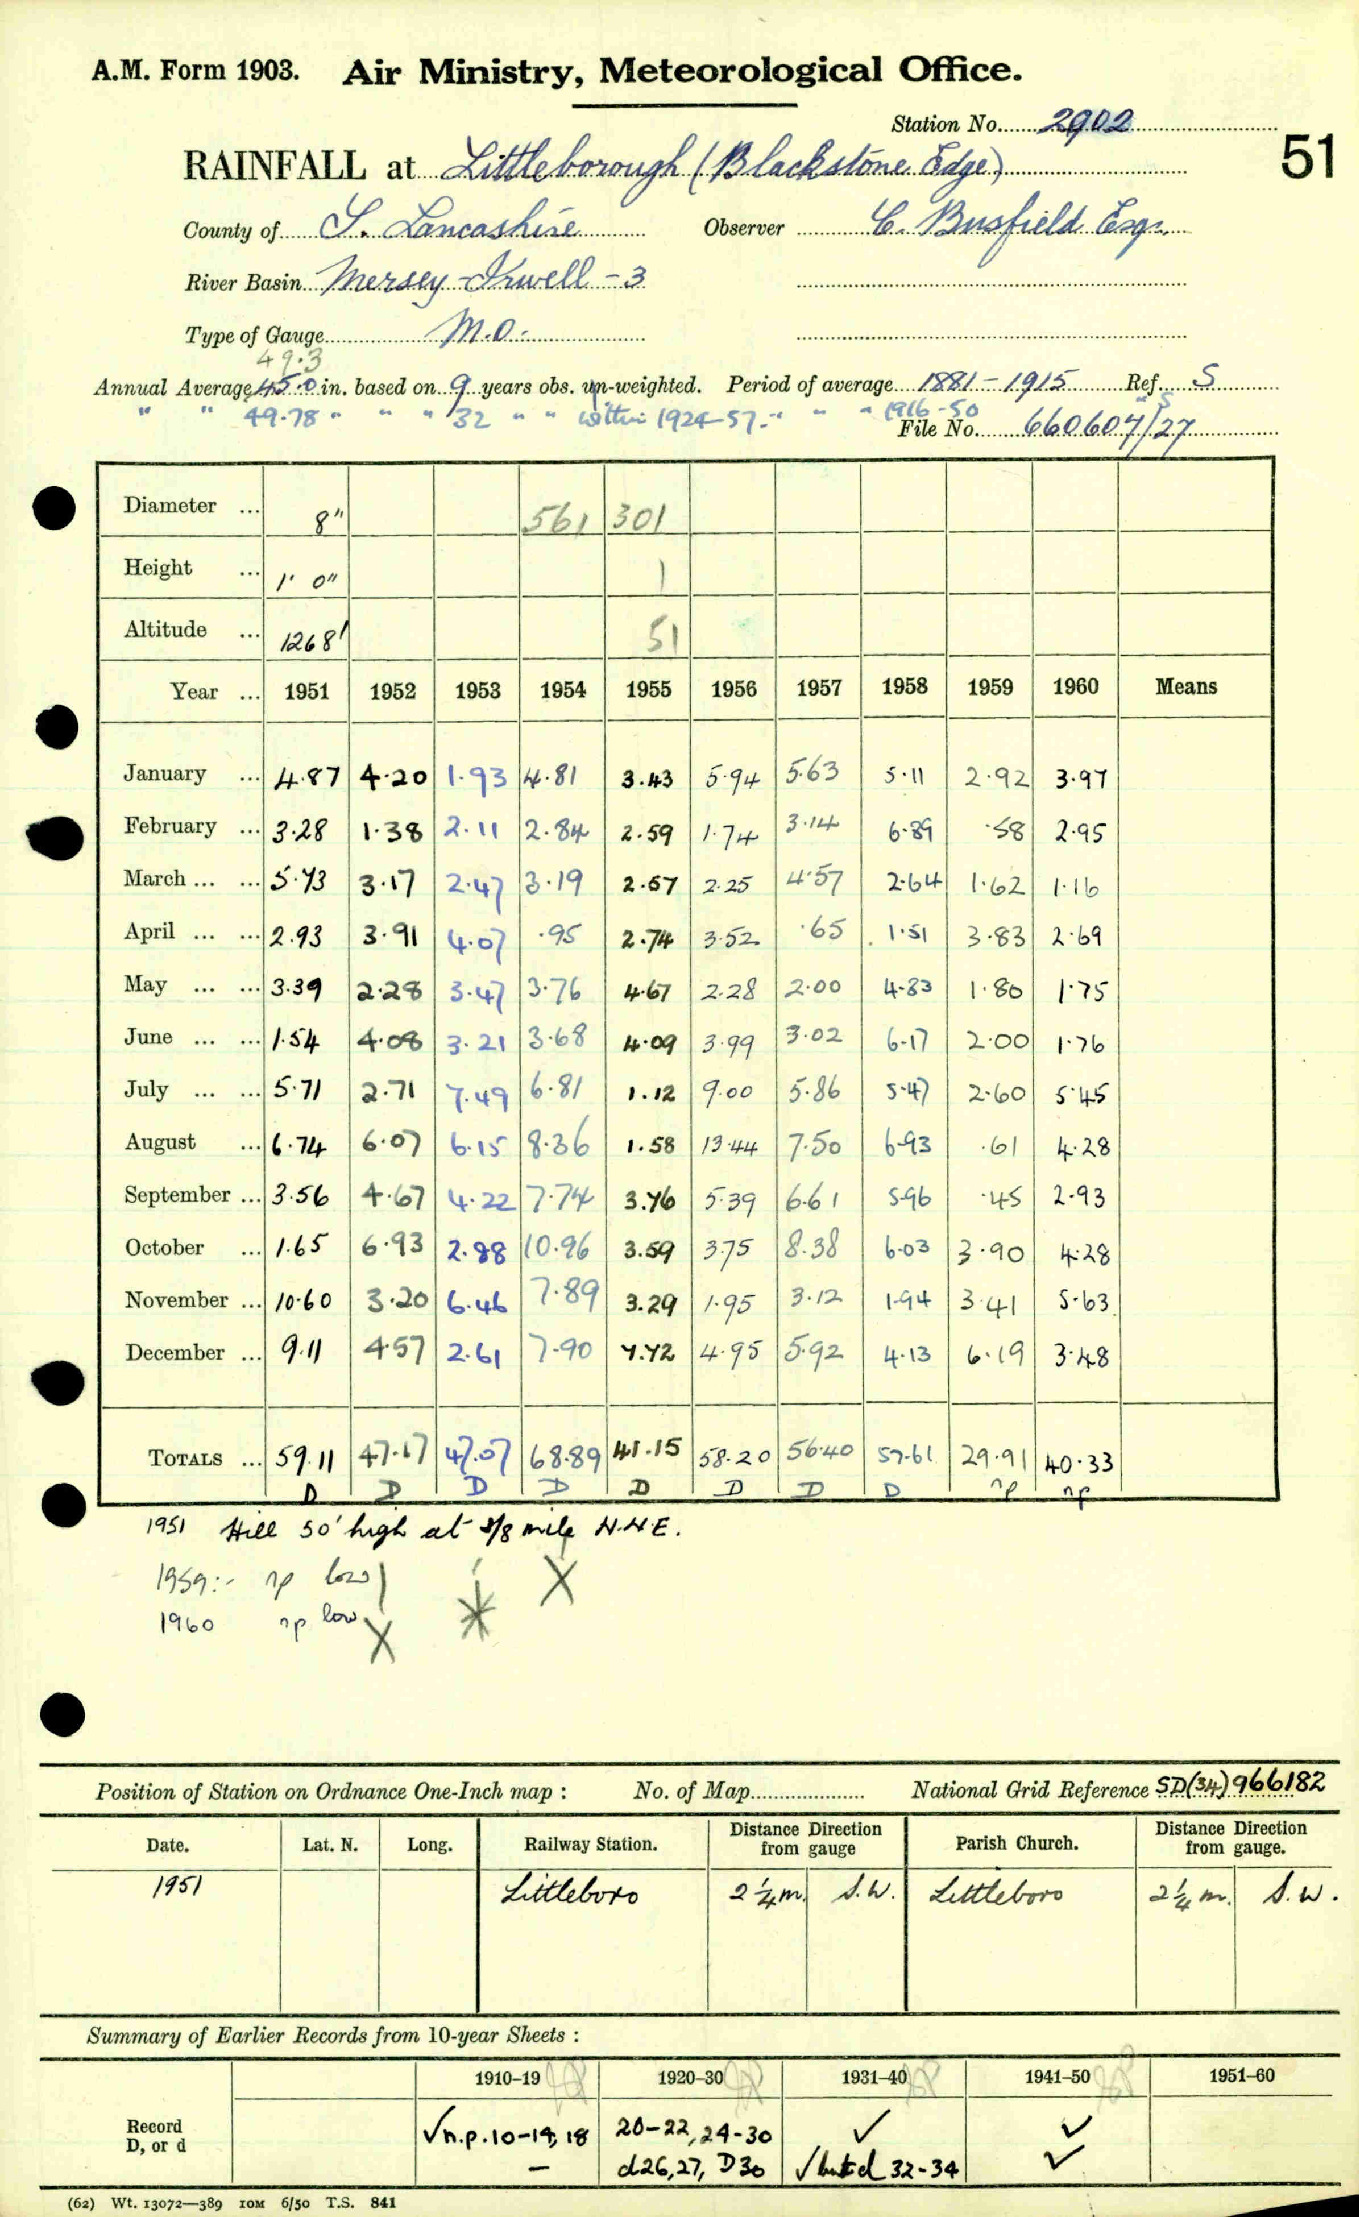 A.M. Form 1903. Air Ministry, Meteorological Office.
Station No. 2902
51
RAINFALL at Littleborough (Blackstone Edge)
County of S. Lancashire Observer C. Busfield Esq.
River Basin Mersey-Irwell-3
Type of Gauge M.O.
49.3
Annual Average 45.0 in. based on 9 years obs. un-weighted. Period of average 1881-1915 Ref. S
" " 49.78 " " " 32 " " within 1924-57. " " " 1916-50 " S
File No. 660607/27
Diameter ... 8" 561 301
Height ... 1' 0" 1
Altitude ... 1268' 51
Year ... 1951 1952 1953 1954 1955 1956 1957 1958 1959 1960 Means
January ... 4.87 4.20 1.93 4.81 3.43 5.94 5.63 5.11 2.92 3.97
February ... 3.28 1.38 2.11 2.84 2.59 1.74 3.14 6.89 .58 2.95
March ... ... 5.73 3.17 2.47 3.19 2.57 2.25 4.57 2.64 1.62 1.16
April ... ... 2.93 3.91 4.07 .95 2.74 3.52 .65 1.51 3.83 2.69
May ... ... 3.39 2.28 3.47 3.76 4.67 2.28 2.00 4.83 1.80 1.75
June ... ... 1.54 4.08 3.21 3.68 4.09 3.99 3.02 6.17 2.00 1.76
July ... ... 5.71 2.71 7.49 6.81 1.12 9.00 5.86 5.47 2.60 5.45
August ... 6.74 6.07 6.15 8.36 1.58 13.44 7.50 6.93 .61 4.28
September ... 3.56 4.67 4.22 7.74 3.76 5.39 6.61 5.96 .45 2.93
October ... 1.65 6.93 2.88 10.96 3.59 3.75 8.38 6.03 3.90 4.28
November ... 10.60 3.20 6.46 7.89 3.29 1.95 3.12 1.94 3.41 5.63
December ... 9.11 4.57 2.61 7.90 7.72 4.95 5.92 4.13 6.19 3.48
TOTALS ... 59.11 47.17 47.07 68.89 41.15 58.20 56.40 57.61 29.91 40.33
D D D D D D D D np np
1951 Hill 50' high at 3/8 mile N.N.E.
1959:- np low
1960 np low
Position of Station on Ordnance One-Inch map : No. of Map National Grid Reference SD(34)966182
Date. Lat. N. Long. Railway Station. Distance Direction from gauge Parish Church. Distance Direction from gauge.
1951 Littleboro 2 1/4 m. S.W. Littleboro 2 1/4 m. S.W.
Summary of Earlier Records from 10-year Sheets :
1910–19 1920–30 1931–40 1941–50 1951–60
Record √n.p. 10-14, 18 20-22, 24-30 √ √
D, or d – d26, 27, D30 √ but d 32-34 √
(62) Wt. 13072—389 10M 6/50 T.S. 841